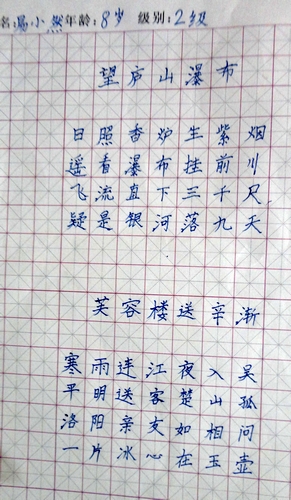 名:易小然年龄:8岁 级别:2级
望庐山瀑布
日照香炉生紫烟
遥看瀑布挂前川
飞流直下三千尺
疑是银河落九天
芙容楼送辛渐
寒雨连江夜入吴
平明送客楚山孤
洛阳亲友如相问
一片冰心在玉壶